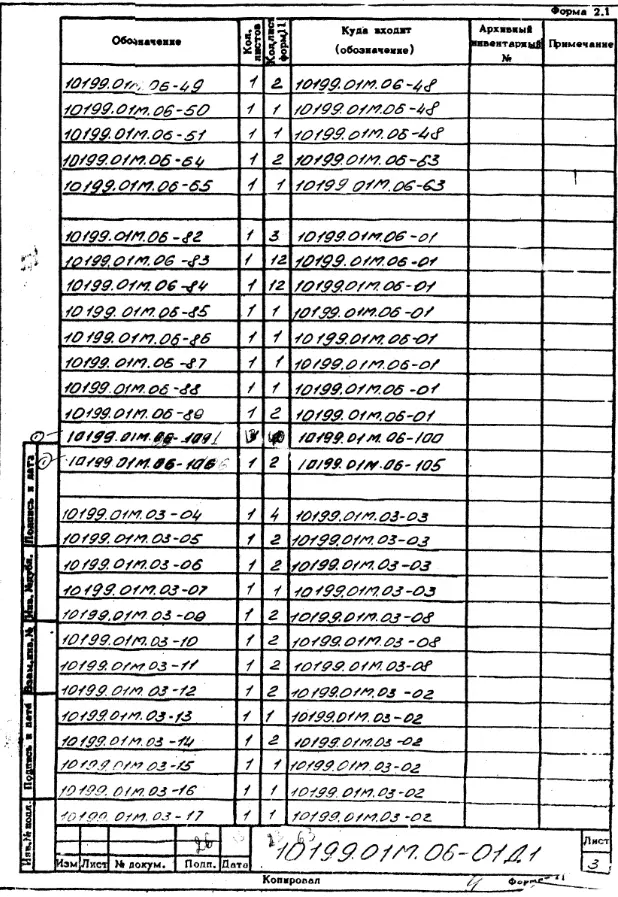 Форма 2.1
Обозначение Кол. листов Кол. лист форм. 11 Куда входит (обозначение) Архивный инвентарный № Примечание
10199.01М.06-49 1 2 10199.01М.06-48
10199.01М.06-50 1 1 10199.01М.06-48
10199.01М.06-51 1 1 10199.01М.06-48
10199.01М.06-64 1 2 10199.01М.06-63
10199.01М.06-65 1 1 10199.01М.06-63
10199.01М.06-82 1 3 10199.01М.06-01
10199.01М.06-83 1 12 10199.01М.06-01
10199.01М.06-84 1 12 10199.01М.06-01
10199.01М.06-85 1 1 10199.01М.06-01
10199.01М.06-86 1 1 10199.01М.06-01
10199.01М.06-87 1 1 10199.01М.06-01
10199.01М.06-88 1 1 10199.01М.06-01
10199.01М.06-89 1 2 10199.01М.06-01
10199.01М.06-101 10199.01М.06-100
10199.01М.06-106 1 2 10199.01М.06-105
10199.01М.03-04 1 4 10199.01М.03-03
10199.01М.03-05 1 2 10199.01М.03-03
10199.01М.03-06 1 2 10199.01М.03-03
10199.01М.03-07 1 1 10199.01М.03-03
10199.01М.03-09 1 2 10199.01М.03-08
10199.01М.03-10 1 2 10199.01М.03-08
10199.01М.03-11 1 2 10199.01М.03-08
10199.01М.03-12 1 2 10199.01М.03-02
10199.01М.03-13 1 1 10199.01М.03-02
10199.01М.03-14 1 2 10199.01М.03-02
10199.01М.03-15 1 1 10199.01М.03-02
10199.01М.03-16 1 1 10199.01М.03-02
10199.01М.03-17 1 1 10199.01М.03-02
Инв.№ подл. Подпись и дата Взам.инв.№ Инв. №дубл. Подпись и дата
Изм Лист № докум. Подп. Дата
10199.01М.06-01Д1
Лист
3
Копировал